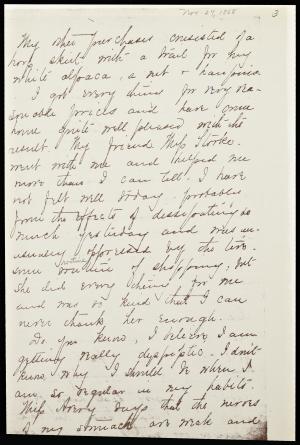 Nov. 29, 1868
3
My other purchases consisted of a
hoop skirt with a trail for my
white alpaca, a net & hairpins.
I got every thing for very rea-
sonable prices and have come
home quite well pleased with the
result. My friend Miss Storke
went with me and helped me
more than I can tell. I have
not felt well today. probably
from the effects of dissipating so
much yesterday and was un-
usually oppressed by the tire-
some routine of shopping, but
she did every thing for me
and was so kind that I can
never thank her enough.
Do you know, I believe I am
getting really dyspeptic. I don't
know why I should be when I
am so regular in my habits.
Miss Avery says that the nerves
of my stomach are weak and